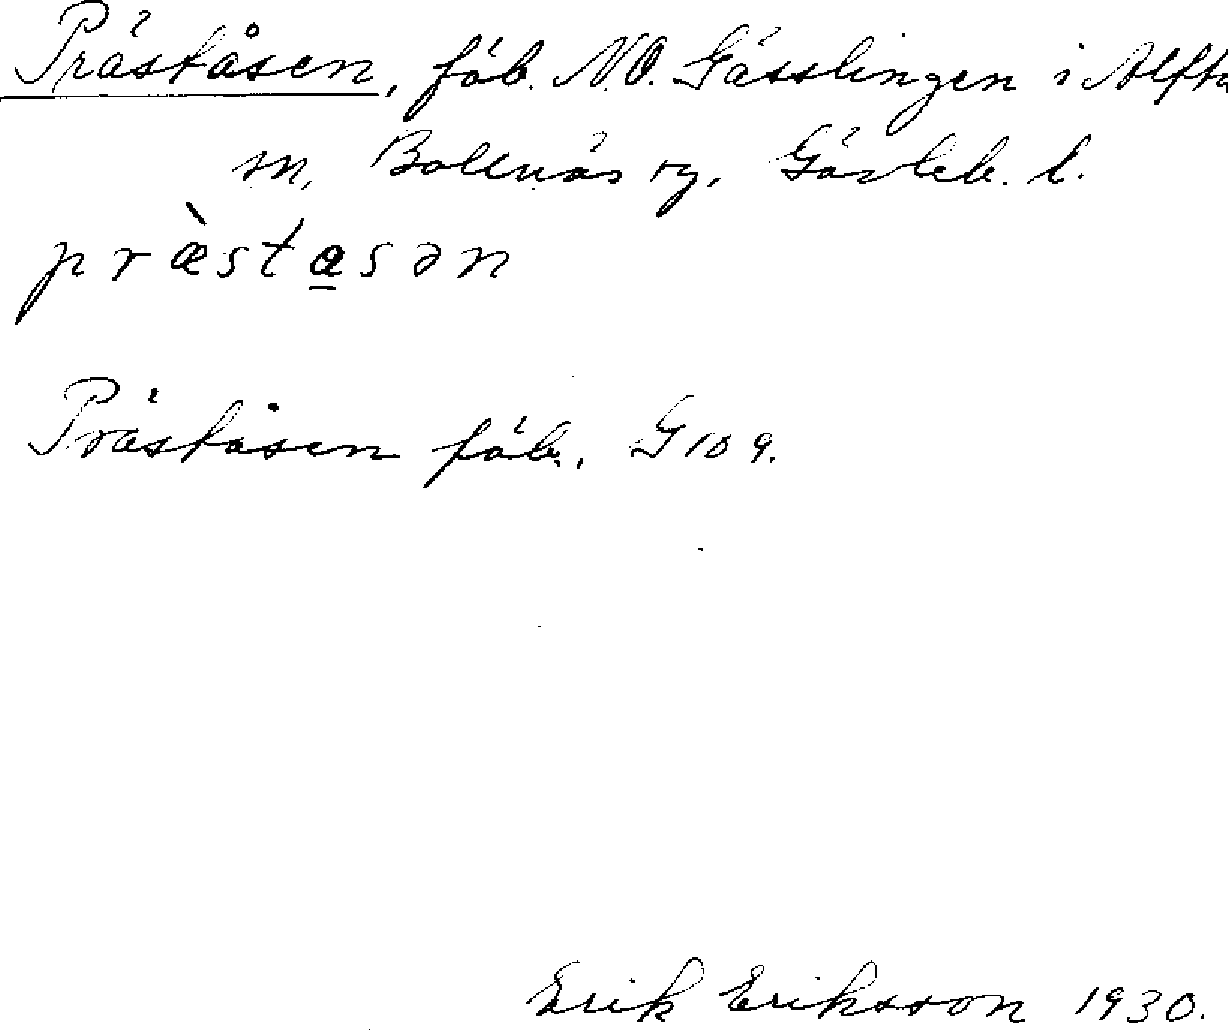 Präståsen, fäb. N.O. Gässlingen i Alfta
sn, Bollnäs rg. Gävleb. l.
præ̀sta̲sən
Präståsen fäb. G 109.
Erik Eriksson 1930.